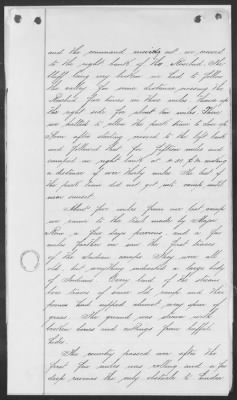 and the command moved out we moved
to the right bank of the Rosebud. The
bluffs being very broken we had to follow
the valley for some distance, crossing the
Rosebud five times in three miles. Thence up
the right side for about ten miles. There
we halted to allow the pack train to close up.
Soon after starting crossed to the left bank
and followed that for fifteen miles and
camped on right bank at 4.30 P.M. making
a distance of over thirty miles. The last of
the pack train did not get into camp until
near sunset.
About five miles from our last camp
we came to the trail made by Major
Reno a few days previous, and a few
miles further on saw the first traces
of the Indian camps. They were all
old, but everything indicated a large body
of Indians. Every bend of the stream
bore traces of some old camp and their
ponies had nipped almost every spear of
grass. The ground was strewn with
broken bones and cuttings from buffalo
hides.
The country passed over after the
first five miles was rolling and a few
deep ravines the only obstacle to hinder